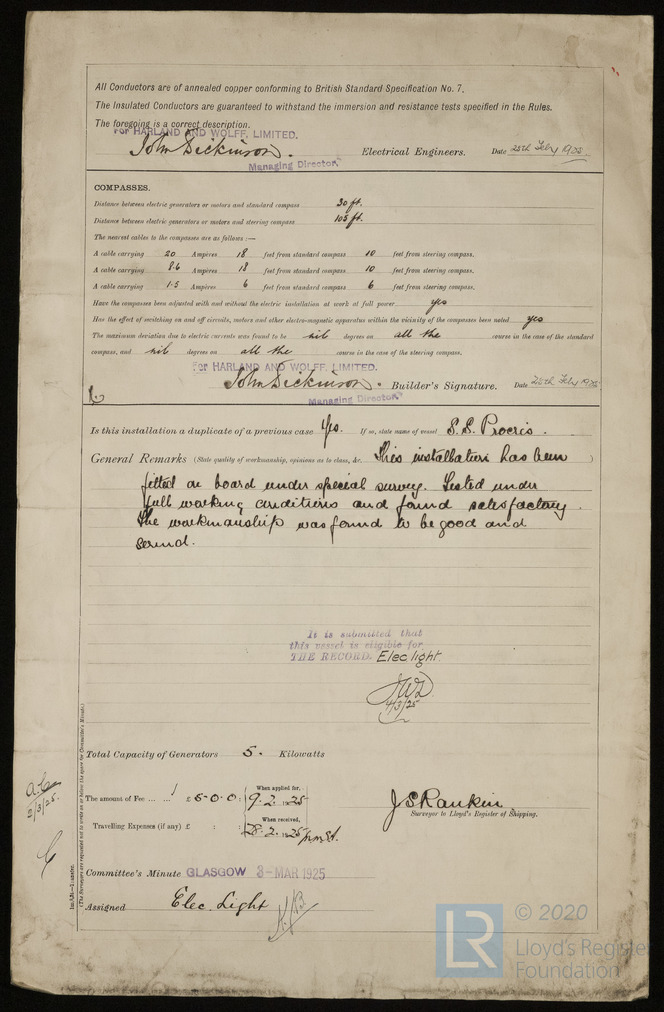 All Conductors are of annealed copper conforming to British Standard Specification No. 7.
The Insulated Conductors are guaranteed to withstand the immersion and resistance tests specified in the Rules.
The foregoing is a correct description.
For HARLAND AND WOLFF, LIMITED.
John Dickinson. Electrical Engineers. Date 25th Feby 1925
Managing Director.
COMPASSES.
Distance between electric generators or motors and standard compass 90 ft.
Distance between electric generators or motors and steering compass 105 ft.
The nearest cables to the compasses are as follows :—
A cable carrying 20 Ampères 18 feet from standard compass 10 feet from steering compass.
A cable carrying 8.6 Ampères 18 feet from standard compass 10 feet from steering compass.
A cable carrying 1.5 Ampères 6 feet from standard compass 6 feet from steering compass.
Have the compasses been adjusted with and without the electric installation at work at full power yes
Has the effect of switching on and off circuits, motors and other electro-magnetic apparatus within the vicinity of the compasses been noted yes
The maximum deviation due to electric currents was found to be nil degrees on all the course in the case of the standard
compass, and nil degrees on all the course in the case of the steering compass.
For HARLAND AND WOLFF, LIMITED.
John Dickinson. Builder's Signature. Date 25th Feby 1925
Managing Director.
Is this installation a duplicate of a previous case Yes. If so, state name of vessel S.S. Procris.
General Remarks (State quality of workmanship, opinions as to class, &c. This installation has been )
fitted on board under special survey. Tested under
full working conditions and found satisfactory.
The workmanship was found to be good and
sound.
It is submitted that
this vessel is eligible for
THE RECORD. Elec light.
4/3/25
Total Capacity of Generators 5. Kilowatts
The amount of Fee ... ... £ 5-0-0 : When applied for, 9.2.1925
Travelling Expenses (if any) £ : : When received, 28.2.1925
J S Rankin
Surveyor to Lloyd's Register of Shipping.
2/3/25.
Committee's Minute GLASGOW 3-MAR 1925
Assigned Elec. Light
(The Surveyors are requested not to write on or below the space for Committee's Minute.)
© 2020
LR Lloyd's Register
Foundation